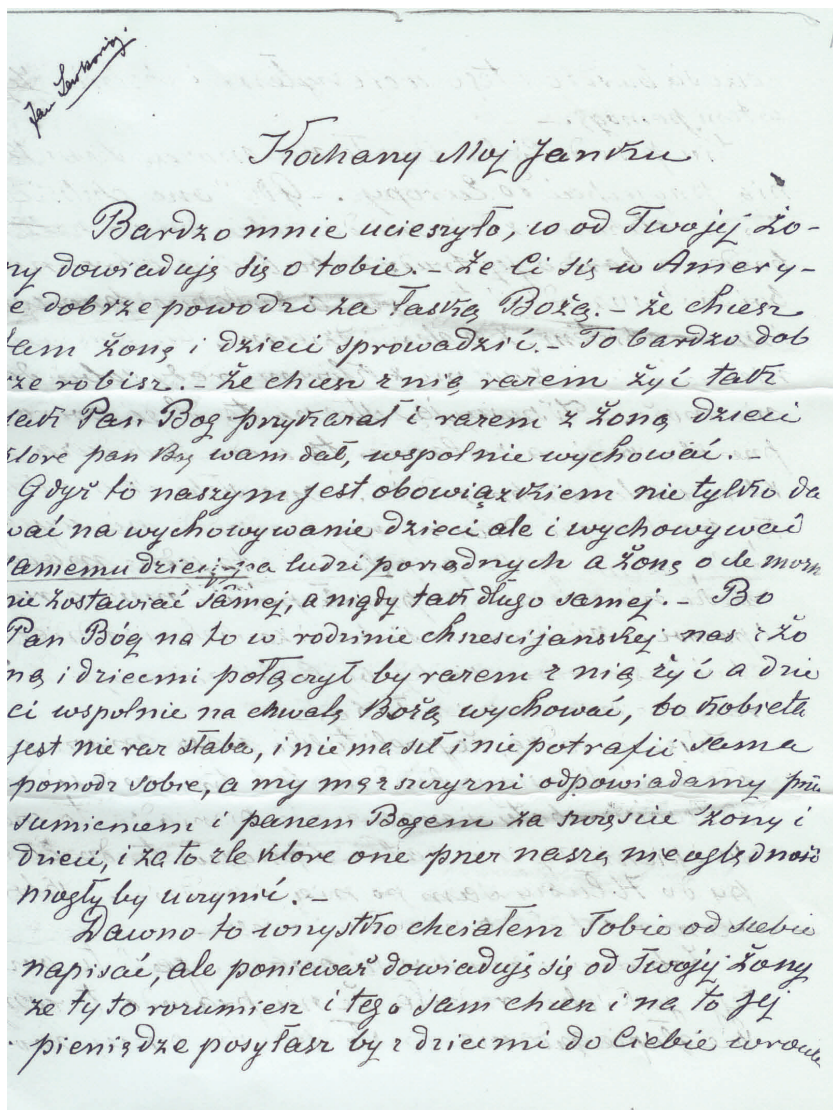 Jan
Kochany Moj Janku
Bardzo mnie ucieszyło, co od Twojej żo-
ny dowiaduję się o tobie. – że Ci się w Amery-
e dobrze powodzi za łaską Bożą. – że chcesz
tam żonę i dzieci sprowadzić. – To bardzo dob
rze robisz. – że chcesz z nią razem żyć tak
jak Pan Bog przykazał i razem z żoną dzieci
ktore pan Bog wam dał, wspolnie wychować. –
Gdyż to naszym jest obowiązkiem nie tylko da
wać na wychowywanie dzieci ale i wychowywać
samemu dzieci na ludzi porządnych a żonę o ile możn
nie zostawiać samej, a nigdy tak długo samej. – Bo
Pan Bóg na to w rodzinie chrzescijanskej nas z żo
ną i dziecmi połączył by razem z nią żyć a dzie
ci wspolnie na chwałę Bożą wychować, bo kobieta
jest nie raz słaba, i nie ma sił i nie potrafii sama
pomodz sobie, a my męzszczyzni odpowiadamy prze
sumieniem i panem Bogem za szczęscie żony i
dzieci, i za to złe ktore one przez naszą nieoględność
mogły by uczynić. –
Dawno to wszystko chciałem Tobie od siebie
napisać, ale ponieważ dowiaduję się od Twojy żony
że ty to rozumiesz i tego sam chcesz i na to jej
pieniądze posyłasz by z dziecmi do Ciebie